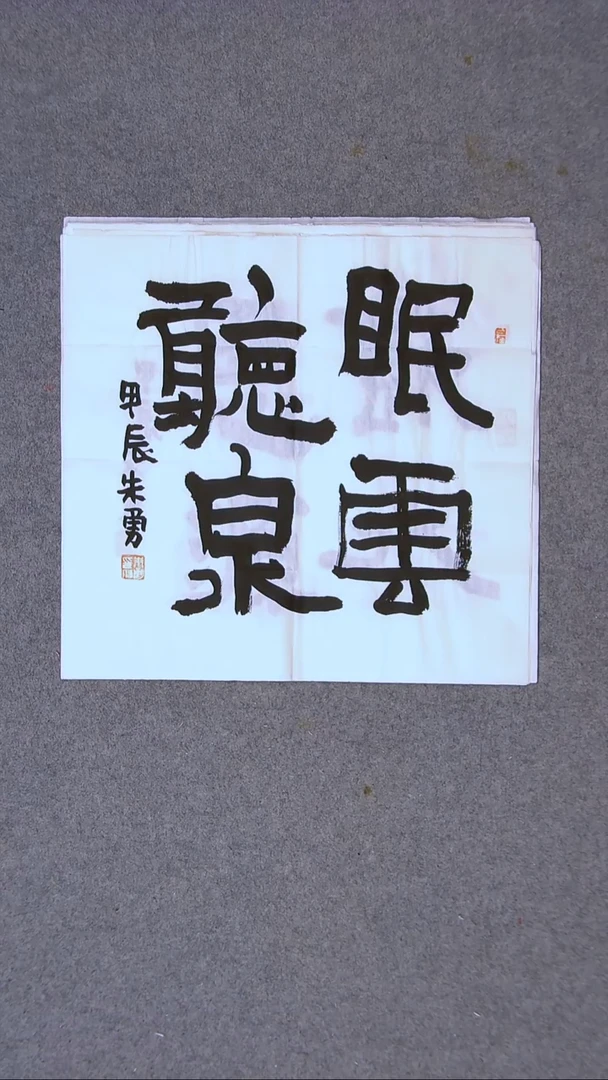 眠雲
聽泉
甲辰朱勇